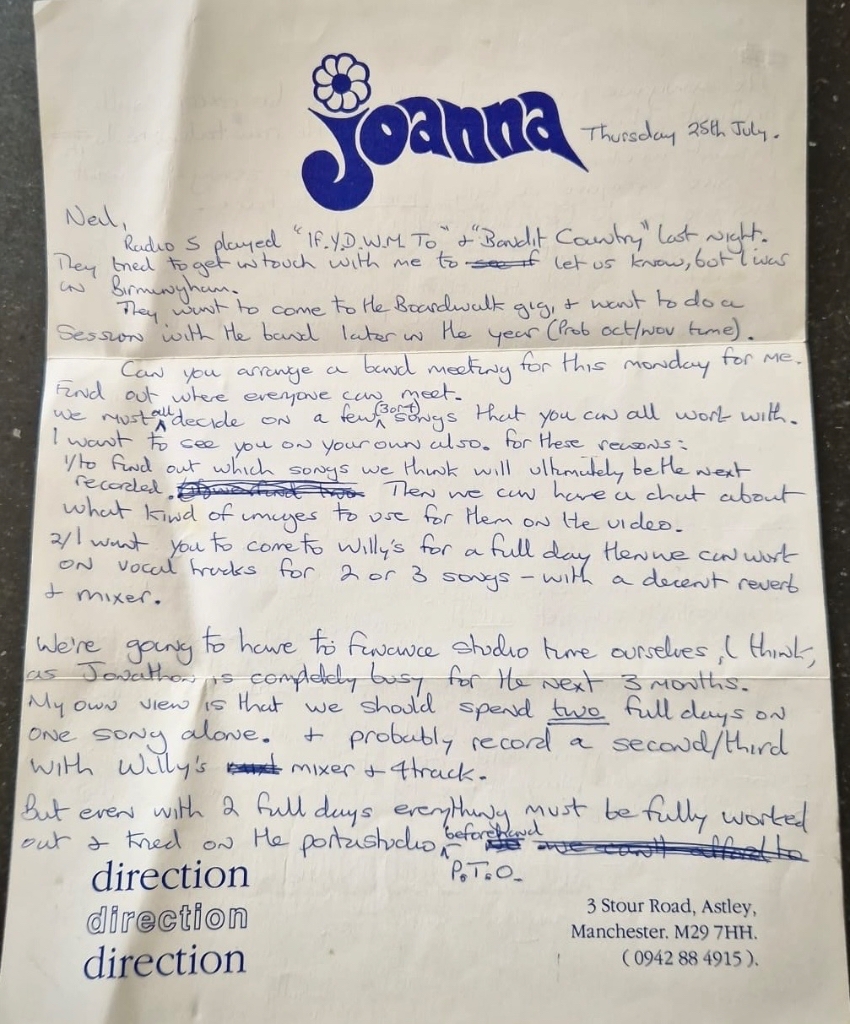 joanna
Thursday 25th July.
Neil,
Radio 5 played "If.Y.D.W.M. To" + "Bandit Country" last night.
They tried to get in touch with me to see if let us know, but I was
in Birmingham.
They want to come to the Boardwalk gig, + want to do a
session with the band later in the year (Prob oct/nov time).
Can you arrange a band meeting for this monday for me.
Find out where everyone can meet.
we must all decide on a few (3 or 4) songs that you can all work with.
I want to see you on your own also. for these reasons:
1/to find out which songs we think will ultimately be the next
recorded. Then we can have a chat about
what kind of images to use for them on the video.
2/I want you to come to Willy's for a full day then we can work
on vocal tracks for 2 or 3 songs - with a decent reverb
+ mixer.
We're going to have to finance studio time ourselves, I think,
as Jonathon is completely busy for the next 3 months.
My own view is that we should spend two full days on
one song alone. + probably record a second/third
with Willy's mixer + 4track.
But even with 2 full days everything must be fully worked
out + tried on the portastudio beforehand we can't afford to
P.T.O.
direction
direction
direction
3 Stour Road, Astley,
Manchester. M29 7HH.
(0942 88 4915).